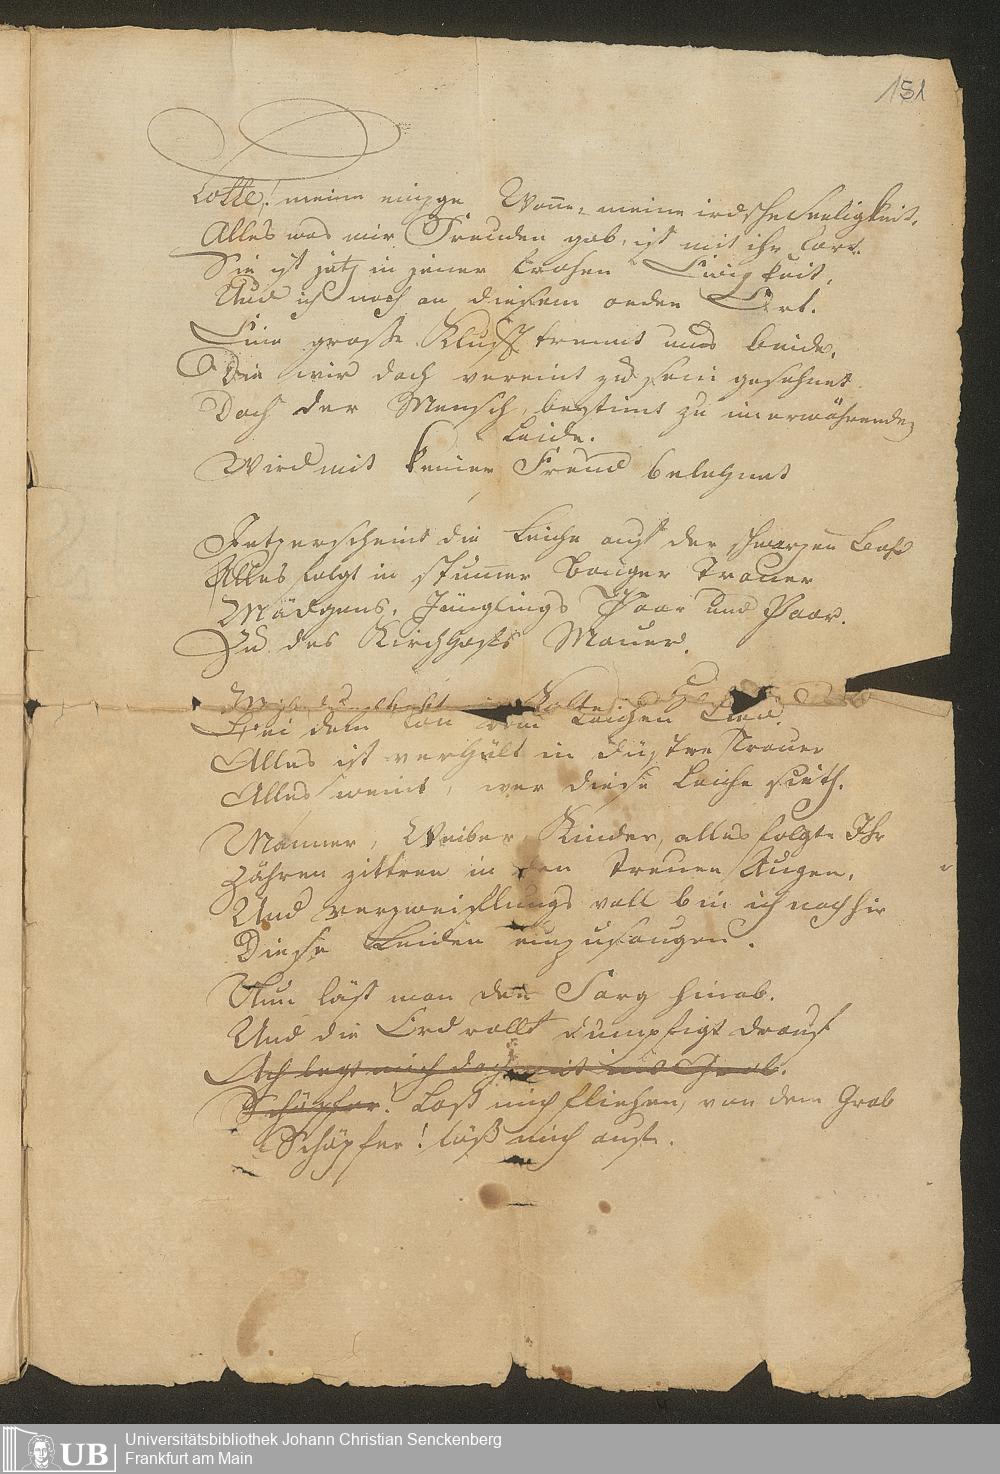 151
Lotte! meine einzge Wonne, meine irdsche Seeligkeit.
Alles was mir Freuden gab, ist mit ihr fort.
Sie ist jetz in jener frohen Ewigkeit,
Und ich noch an diesem oeden Ort.
Eine große Kluft trennt uns beide,
Die wir doch vereint zu sein gesehnet
Doch der Mensch, bestimt zu imerwährenden
Leide.
Wird mit keiner Freud belehnet
Jetz erscheint die Leiche auf der schwarzen
Alles folgt in stumer banger Trauer
Mädgens, Jünglings Paar und Paar.
Zu des Kirchhofs Mauer.
Bei dem Ton vom Leichen Lied.
Alles ist verhült in düstre Trauer
Alles weint, wer diese Leiche sieth.
Männer, Weiber, Kinder, alles folgte Ihr
Zähren zittren in den treuen Augen,
Und verzweiflungs voll bin ich noch hir
Diese Leiden einzusaugen.
Nun läst man den Sarg hinab.
Und die Erd rollt dumpfigt drauf
Ach legt mich doch mit ins Grab.
Schöpfer. Laß mich fliehen, von dem Grab
Schöpfer! löß mich auf.
UB
Universitätsbibliothek Johann Christian Senckenberg
Frankfurt am Main